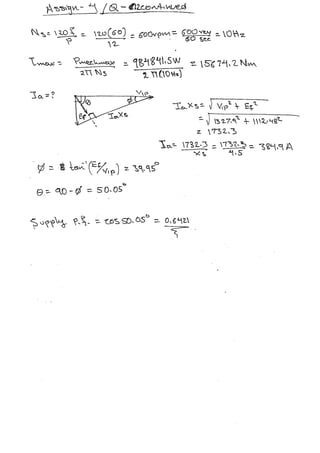 Assign-4/Q-2continued
Ns = 120 f/P = 120(60)/12 = 600rpm = 600 rev/60 sec = 10Hz
Tmax = Pmechmax/2π Ns = 984841.5W/2π(10Hz) = 15674.2 Nm
Ia = ?
V1p
Ef
IaXs
θ
Ø
IaXs = √V1p² + Ef²
= √1327.9² + 1112.48²
= 1732.3
Ia = 1732.3/Xs = 1732.3/4.5 = 384.9A
Ø = tan⁻¹(Ef/V1p) = 39.95°
θ = 90 - Ø = 50.05°
Supply P.f. = cos50.05° = 0.6421